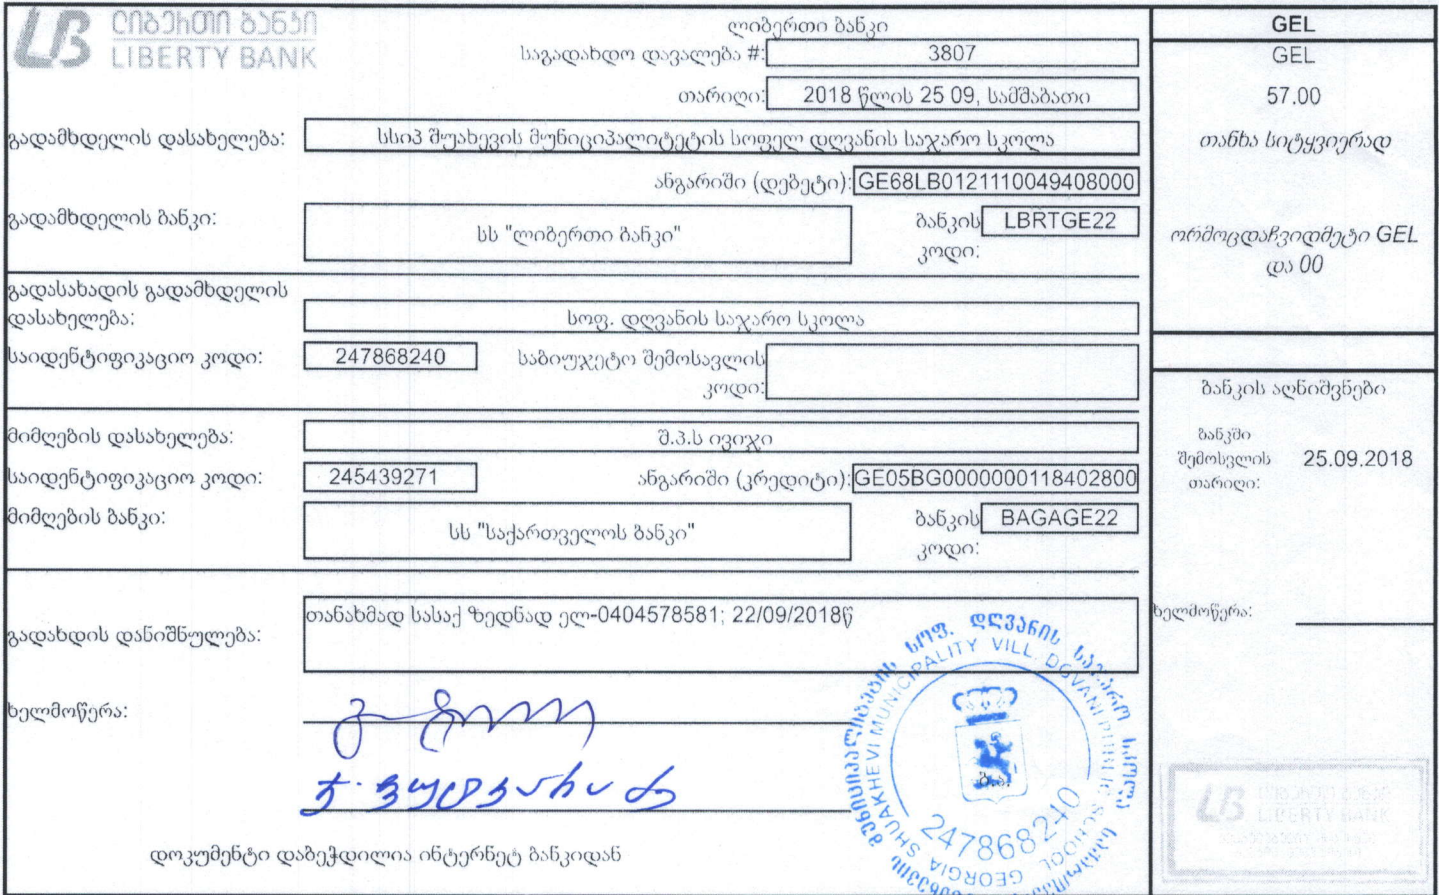 ლიბერთი ბანკი
LIBERTY BANK
ლიბერთი ბანკი
საგადახდო დავალება #: 3807
თარიღი: 2018 წლის 25 09, სამშაბათი
გადამხდელის დასახელება: სსიპ შუახევის მუნიციპალიტეტის სოფელ დღვანის საჯარო სკოლა
ანგარიში (დებეტი): GE68LB0121110049408000
გადამხდელის ბანკი: სს "ლიბერთი ბანკი"
ბანკის კოდი: LBRTGE22
გადასახადის გადამხდელის
დასახელება: სოფ. დღვანის საჯარო სკოლა
საიდენტიფიკაციო კოდი: 247868240
საბიუჯეტო შემოსავლის
კოდი:
მიმღების დასახელება: შ.პ.ს ივიჯი
საიდენტიფიკაციო კოდი: 245439271 ანგარიში (კრედიტი): GE05BG0000000118402800
მიმღების ბანკი: სს "საქართველოს ბანკი"
ბანკის კოდი: BAGAGE22
გადახდის დანიშნულება: თანახმად სასაქ ზედნად ელ-0404578581; 22/09/2018წ
ხელმოწერა:
დოკუმენტი დაბეჭდილია ინტერნეტ ბანკიდან
GEL
GEL
57.00
თანხა სიტყვიერად
ორმოცდაჩვიდმეტი GEL
და 00
ბანკის აღნიშვნები
ბანკში
შემოსვლის
თარიღი: 25.09.2018
ხელმოწერა:
სოფ. დღვანის საჯარო სკოლა
SHUAKHEVI MUNICIPALITY VILL. DGVANI PUBLIC SCHOOL
GEORGIA
247868240
ბ.ა.
LIBERTY BANK